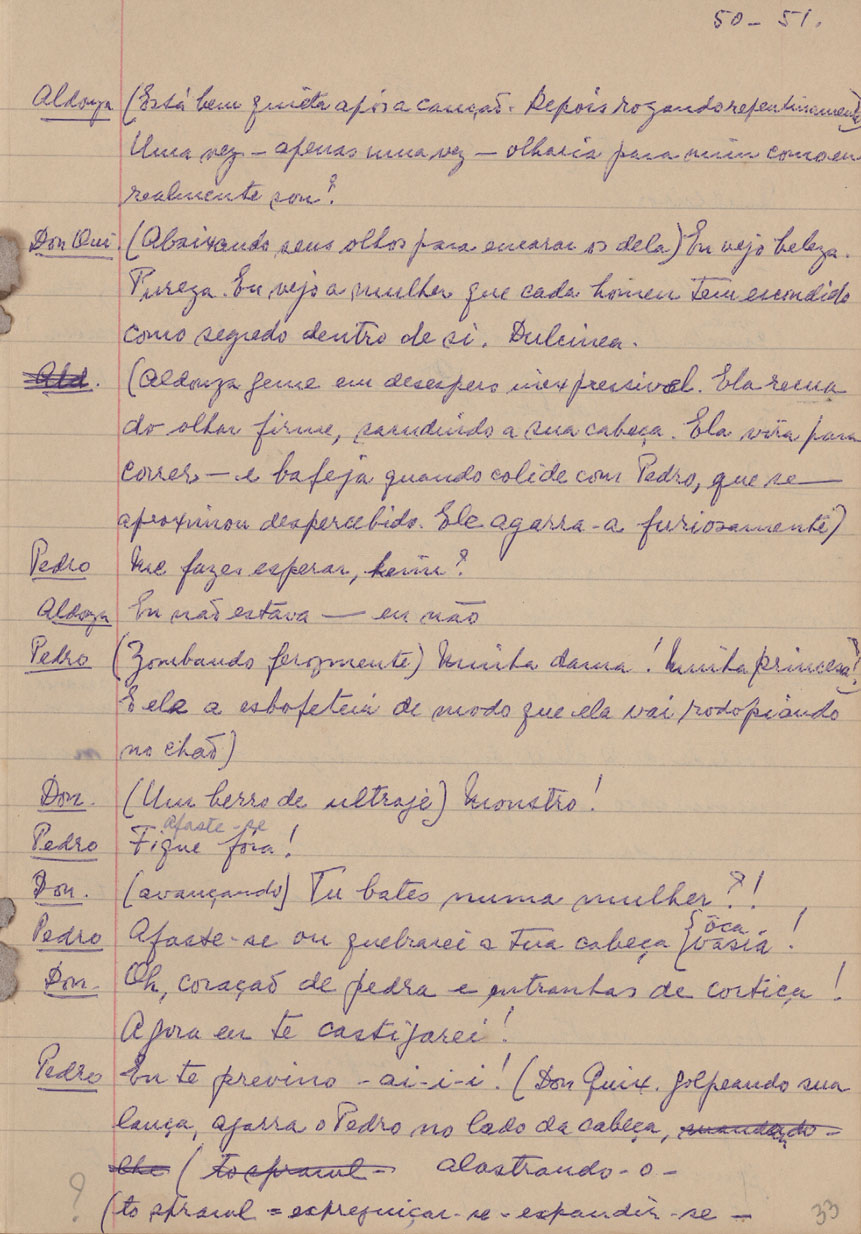 50 - 51.
Aldonza (Está bem quieta após a canção. Depois rogando repentinamente)
Uma vez — apenas uma vez — olharia para mim como eu
realmente sou?
Don Qui. (Abaixando seus olhos para encarar os dela) Eu vejo beleza.
Pureza. Eu vejo a mulher que cada homem tem escondido
como segredo dentro de si. Dulcinea.
Ald. (Aldonza geme em desespero inexpressivel. Ela recua
do olhar firme, sacudindo a sua cabeça. Ela vira para
correr — e bafeja quando colide com Pedro, que se —
aproximou despercebido. Ele agarra-a furiosamente)
Pedro Me fazes esperar, heim?
Aldonza Eu não estava — eu não
Pedro (Zombando ferozmente) Minha dama! Minha princesa!)
E ele a esbofeteia de modo que ela vai rodopiando
no chão)
Don. (Um berro de ultraje) Monstro!
afaste-se
Pedro Fique fóra!
Don. (avançando) Tu bates numa mulher?!
Pedro Afaste-se ou quebrarei a tua cabeça { ôca
vasia!
Don. Oh, coração de pedra e entranhas de cortiça!
Agora eu te castigarei!
Pedro Eu te previno - ai-i-i! (Don Quix. golpeando sua
lança, agarra o Pedro no lado da cabeça, mandando-
lhe (to sprawl - alastrando-o-
? (to sprawl = espreguiçar-se - expandir-se —
33